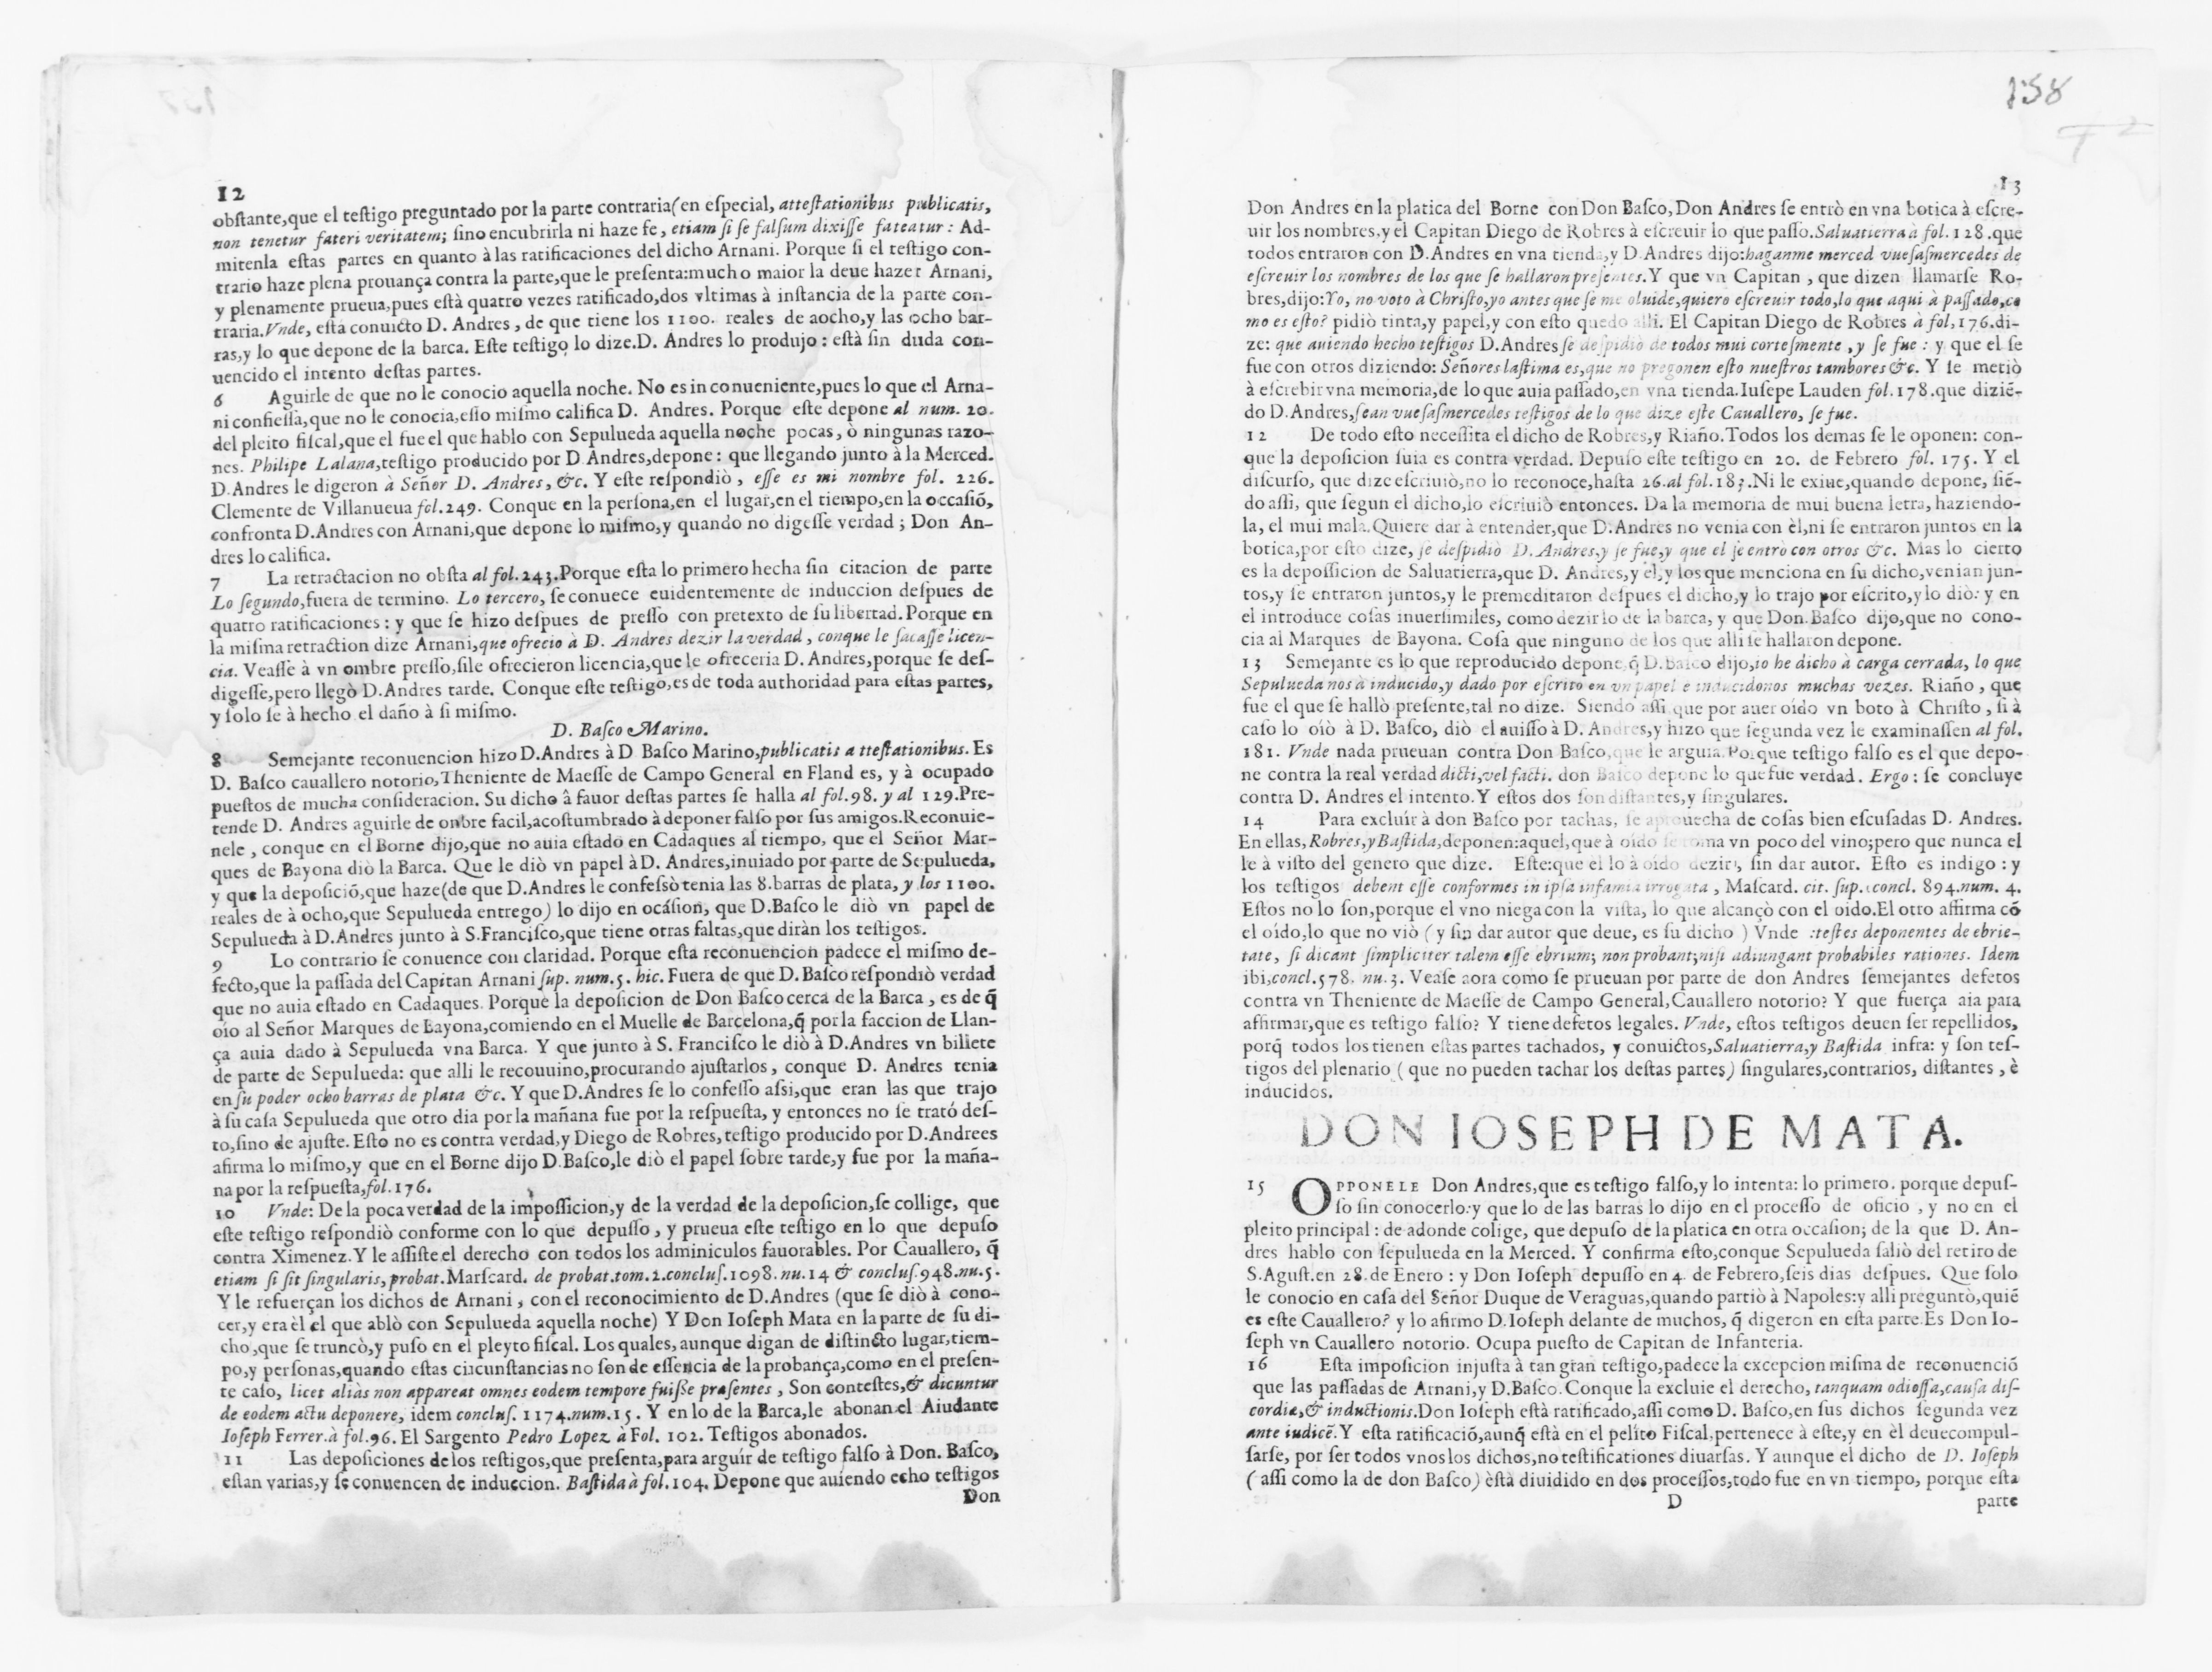 12
obſtante,que el teſtigo preguntado por la parte contraria(en eſpecial, atteſtationibus publicatis,
non tenetur fateri veritatem; ſino encubrirla ni haze fe, etiam ſi ſe falſum dixiſſe fateatur: Ad-
mitenla eſtas partes en quanto à las ratificaciones del dicho Arnani. Porque ſi el teſtigo con-
trario haze plena prouança contra la parte,que le preſenta:mucho maior la deue hazer Arnani,
y plenamente prueua,pues eſtà quatro vezes ratificado,dos vltimas à inſtancia de la parte con-
traria.Vnde, eſta conuicto D. Andres, de que tiene los 1100. reales de aocho,y las ocho bar-
ras,y lo que depone de la barca. Eſte teſtigo lo dize.D. Andres lo produjo: eſtà ſin duda con-
uencido el intento deſtas partes.
6 Aguirle de que no le conocio aquella noche. No es inconueniente,pues lo que el Arna-
ni confieſſa,que no le conocia,eſſo miſmo califica D. Andres. Porque eſte depone al num. 20.
del pleito fiſcal,que el fue el que hablo con Sepulueda aquella noche pocas, ò ningunas razo-
nes. Philipe Lalana,teſtigo producido por D Andres,depone: que llegando junto à la Merced.
D.Andres le digeron à Señor D. Andres, &c. Y eſte reſpondiò, eſſe es mi nombre fol. 226.
Clemente de Villanueua fol.249. Conque en la perſona,en el lugar,en el tiempo,en la occaſiõ,
confronta D.Andres con Arnani,que depone lo miſmo,y quando no digeſſe verdad; Don An-
dres lo califica.
7 La retractacion no obſta al fol.243.Porque eſta lo primero hecha ſin citacion de parte
Lo ſegundo,fuera de termino. Lo tercero, ſe conuece euidentemente de induccion deſpues de
quatro ratificaciones: y que ſe hizo deſpues de preſſo con pretexto de ſu libertad. Porque en
la miſma retraction dize Arnani,que ofrecio à D. Andres dezir la verdad, conque le ſacaſſe licen-
cia. Veaſſe à vn ombre preſſo,ſile ofrecieron licencia,que le ofreceria D. Andres,porque ſe deſ-
digeſſe,pero llegò D.Andres tarde. Conque eſte teſtigo,es de toda authoridad para eſtas partes,
y ſolo ſe à hecho el daño à ſi miſmo.
D. Baſco Marino.
8 Semejante reconuencion hizo D.Andres à D Baſco Marino,publicatis a tteſtationibus. Es
D. Baſco cauallero notorio,Theniente de Maeſſe de Campo General en Fland es, y à ocupado
pueſtos de mucha conſideracion. Su dicho â fauor deſtas partes ſe halla al fol.98. y al 129.Pre-
tende D. Andres aguirle de onbre facil,acoſtumbrado à deponer falſo por ſus amigos.Reconuie-
nele, conque en el Borne dijo,que no auia eſtado en Cadaques al tiempo, que el Señor Mar-
ques de Bayona diò la Barca. Que le diò vn papel à D. Andres,inuiado por parte de Sepulueda,
y que la depoſiciõ,que haze(de que D.Andres le confeſsò tenia las 8.barras de plata, y los 1100.
reales de à ocho,que Sepulueda entrego) lo dijo en ocáſion, que D.Baſco le diò vn papel de
Sepulueda à D.Andres junto à S.Franciſco,que tiene otras faltas,que diràn los teſtigos.
9 Lo contrario ſe conuence con claridad. Porque eſta reconuencion padece el miſmo de-
fecto,que la paſſada del Capitan Arnani ſup. num.5. hic. Fuera de que D. Baſco reſpondiò verdad
que no auia eſtado en Cadaques. Porque la depoſicion de Don Baſco cerca de la Barca, es de q̃
oío al Señor Marques de Bayona,comiendo en el Muelle de Barcelona,q̃ por la faccion de Llan-
ça auia dado à Sepulueda vna Barca. Y que junto à S. Franciſco le diò à D.Andres vn billete
de parte de Sepulueda: que alli le recouuino,procurando ajuſtarlos, conque D. Andres tenia
en ſu poder ocho barras de plata &c. Y que D.Andres ſe lo confeſſo aſsi,que eran las que trajo
à ſu caſa Sepulueda que otro dia por la mañana fue por la reſpueſta, y entonces no ſe trató deſ-
to,ſino de ajuſte. Eſto no es contra verdad,y Diego de Robres,teſtigo producido por D.Andrees
afirma lo miſmo,y que en el Borne dijo D.Baſco,le diò el papel ſobre tarde,y fue por la maña-
na por la reſpueſta,fol.176.
10 Vnde: De la poca verdad de la impoſſicion,y de la verdad de la depoſicion,ſe collige, que
eſte teſtigo reſpondiò conforme con lo que depuſſo, y prueua eſte teſtigo en lo que depuſo
contra Ximenez.Y le aſſiſte el derecho con todos los adminiculos fauorables. Por Cauallero, q̃
etiam ſi ſit ſingularis, probat.Marſcard. de probat.tom.2.concluſ.1098.nu.14 & concluſ.948.nu.5.
Y le refuerçan los dichos de Arnani, con el reconocimiento de D.Andres (que ſe diò à cono-
cer,y era èl el que ablò con Sepulueda aquella noche) Y Don Ioſeph Mata en la parte de ſu di-
cho,que ſe truncò,y puſo en el pleyto fiſcal. Los quales, aunque digan de diſtincto lugar,tiem-
po,y perſonas,quando eſtas circunſtancias no ſon de eſſencia de la probança,como en el preſen-
te caſo, licet aliàs non appareat omnes eodem tempore fuiſſe præſentes, Son conteſtes,& dicuntur
de eodem actu deponere, idem concluſ. 1174.num.15. Y en lo de la Barca,le abonan el Aiudante
Ioſeph Ferrer.à fol.96. El Sargento Pedro Lopez à Fol. 102. Teſtigos abonados.
11 Las depoſiciones de los reſtigos,que preſenta,para arguír de teſtigo falſo à Don. Baſco,
eſtan varias,y ſe conuencen de induccion. Baſtida à fol.104. Depone que auiendo echo teſtigos
Don
158
13
Don Andres en la platica del Borne con Don Baſco,Don Andres ſe entrò en vna botica à eſcre-
uir los nombres,y el Capitan Diego de Robres à eſcreuir lo que paſſo.Saluatierra à fol.128.que
todos entraron con D.Andres en vna tienda,y D Andres dijo:haganme merced vueſaſmercedes de
eſcreuir los nombres de los que ſe hallaron preſentes.Y que vn Capitan, que dizen llamarſe Ro-
bres,dijo:Yo, no voto à Chriſto,yo antes que ſe me oluide,quiero eſcreuir todo,lo que aqui à paſſado,co
mo es eſto? pidiò tinta,y papel,y con eſto quedo alli. El Capitan Diego de Robres à fol,176.di-
ze: que auiendo hecho teſtigos D.Andres ſe deſpidiò de todos mui corteſmente,y ſe fue: y que el ſe
fue con otros diziendo: Señores laſtima es,que no pregonen eſto nueſtros tambores &c. Y ſe metiò
à eſcrebir vna memoria,de lo que auia paſſado,en vna tienda.Iuſepe Lauden fol.178.que diziẽ-
do D.Andres,ſean vueſaſmercedes teſtigos de lo que dize eſte Cauallero, ſe fue.
12 De todo eſto neceſſita el dicho de Robres,y Riaño.Todos los demas ſe le oponen: con-
que la depoſicion ſuia es contra verdad. Depuſo eſte teſtigo en 20. de Febrero fol. 175. Y el
diſcurſo, que dize eſcriuiò,no lo reconoce,haſta 26.al fol.183.Ni le exiue,quando depone, ſiẽ-
do aſſi, que ſegun el dicho,lo eſcriuiò entonces. Da la memoria de mui buena letra, haziendo-
la, el mui mala.Quiere dar à entender,que D.Andres no venia con èl,ni ſe entraron juntos en la
botica,por eſto dize, ſe deſpidiò D.Andres,y ſe fue,y que el ſe entrò con otros &c. Mas lo cierto
es la depoſſicion de Saluatierra,que D. Andres,y el,y los que menciona en ſu dicho,venian jun-
tos,y ſe entraron juntos,y le premeditaron deſpues el dicho,y lo trajo por eſcrito,y lo diò: y en
el introduce coſas inuerſimiles, como dezirlo de la barca, y que Don Baſco dijo,que no cono-
cia al Marques de Bayona. Coſa que ninguno de los que alli ſe hallaron depone.
13 Semejante es lo que reproducido depone,q̃ D.Baſco dijo,io he dicho à carga cerrada, lo que
Sepulueda nos à inducido,y dado por eſcrito en vn papel e inducidonos muchas vezes. Riaño, que
fue el que ſe hallò preſente,tal no dize. Siendo aſſi que por auer oído vn boto à Chriſto, ſi à
caſo lo oiò à D. Baſco, diò el auiſſo à D. Andres,y hizo que ſegunda vez le examinaſſen al fol.
181. Vnde nada prueuan contra Don Baſco,que le arguia.Porque teſtigo falſo es el que depo-
ne contra la real verdad dicti,vel facti. don Baſco depone lo que fue verdad. Ergo: ſe concluye
contra D. Andres el intento.Y eſtos dos ſon diſtantes,y ſingulares.
14 Para excluír à don Baſco por tachas, ſe aprouecha de coſas bien eſcuſadas D. Andres.
En ellas, Robres,y Baſtida,deponen:aquel,que à oído ſe toma vn poco del vino;pero que nunca el
le à viſto del genero que dize. Eſte:que el lo à oído dezir, ſin dar autor. Eſto es indigo: y
los teſtigos debent eſſe conformes in ipſa infamia irrogata, Maſcard. cit. ſup. concl. 894.num. 4.
Eſtos no lo ſon,porque el vno niega con la viſta, lo que alcançò con el oido.El otro affirma cõ
el oído,lo que no viò (y ſin dar autor que deue, es ſu dicho) Vnde :teſtes deponentes de ebrie-
tate, ſi dicant ſimpliciter talem eſſe ebrium; non probant;niſi adiungant probabiles rationes. Idem
ibi,concl.578. nu.3. Veaſe aora como ſe prueuan por parte de don Andres ſemejantes defetos
contra vn Theniente de Maeſſe de Campo General,Cauallero notorio? Y que fuerça aia para
affirmar,que es teſtigo falſo? Y tiene defetos legales. Vnde, eſtos teſtigos deuen ſer repellidos,
porq̃ todos los tienen eſtas partes tachados, y conuictos,Saluatierra,y Baſtida infra: y ſon teſ-
tigos del plenario (que no pueden tachar los deſtas partes) ſingulares,contrarios, diſtantes, è
inducidos.
DON IOSEPH DE MATA.
15 OPPONELE Don Andres,que es teſtigo falſo,y lo intenta: lo primero. porque depuſ-
ſo ſin conocerlo:y que lo de las barras lo dijo en el proceſſo de oficio, y no en el
pleito principal: de adonde colige, que depuſo de la platica en otra occaſion; de la que D. An-
dres hablo con ſepulueda en la Merced. Y confirma eſto,conque Sepulueda ſaliò del retiro de
S.Aguſt.en 28.de Enero: y Don Ioſeph depuſſo en 4. de Febrero,ſeis dias deſpues. Que ſolo
le conocio en caſa del Señor Duque de Veraguas,quando partiò à Napoles:y alli preguntò,quiẽ
es eſte Cauallero? y lo afirmo D.Ioſeph delante de muchos, q̃ digeron en eſta parte.Es Don Io-
ſeph vn Cauallero notorio. Ocupa pueſto de Capitan de Infanteria.
16 Eſta impoſicion injuſta à tan gran teſtigo,padece la excepcion miſma de reconuenciõ
que las paſſadas de Arnani,y D.Baſco.Conque la excluie el derecho, tanquam odioſſa,cauſa diſ-
cordiæ,& inductionis.Don Ioſeph eſtà ratificado,aſſi como D. Baſco,en ſus dichos ſegunda vez
ante iudicẽ.Y eſta ratificaciõ,aunq̃ eſtà en el pelíto Fiſcal,pertenece à eſte,y en èl deuecompul-
ſarſe, por ſer todos vnos los dichos,no teſtificationes diuarſas. Y aunque el dicho de D. Ioſeph
(aſſi como la de don Baſco) èſtà diuidido en dos proceſſos,todo fue en vn tiempo, porque eſta
D parte